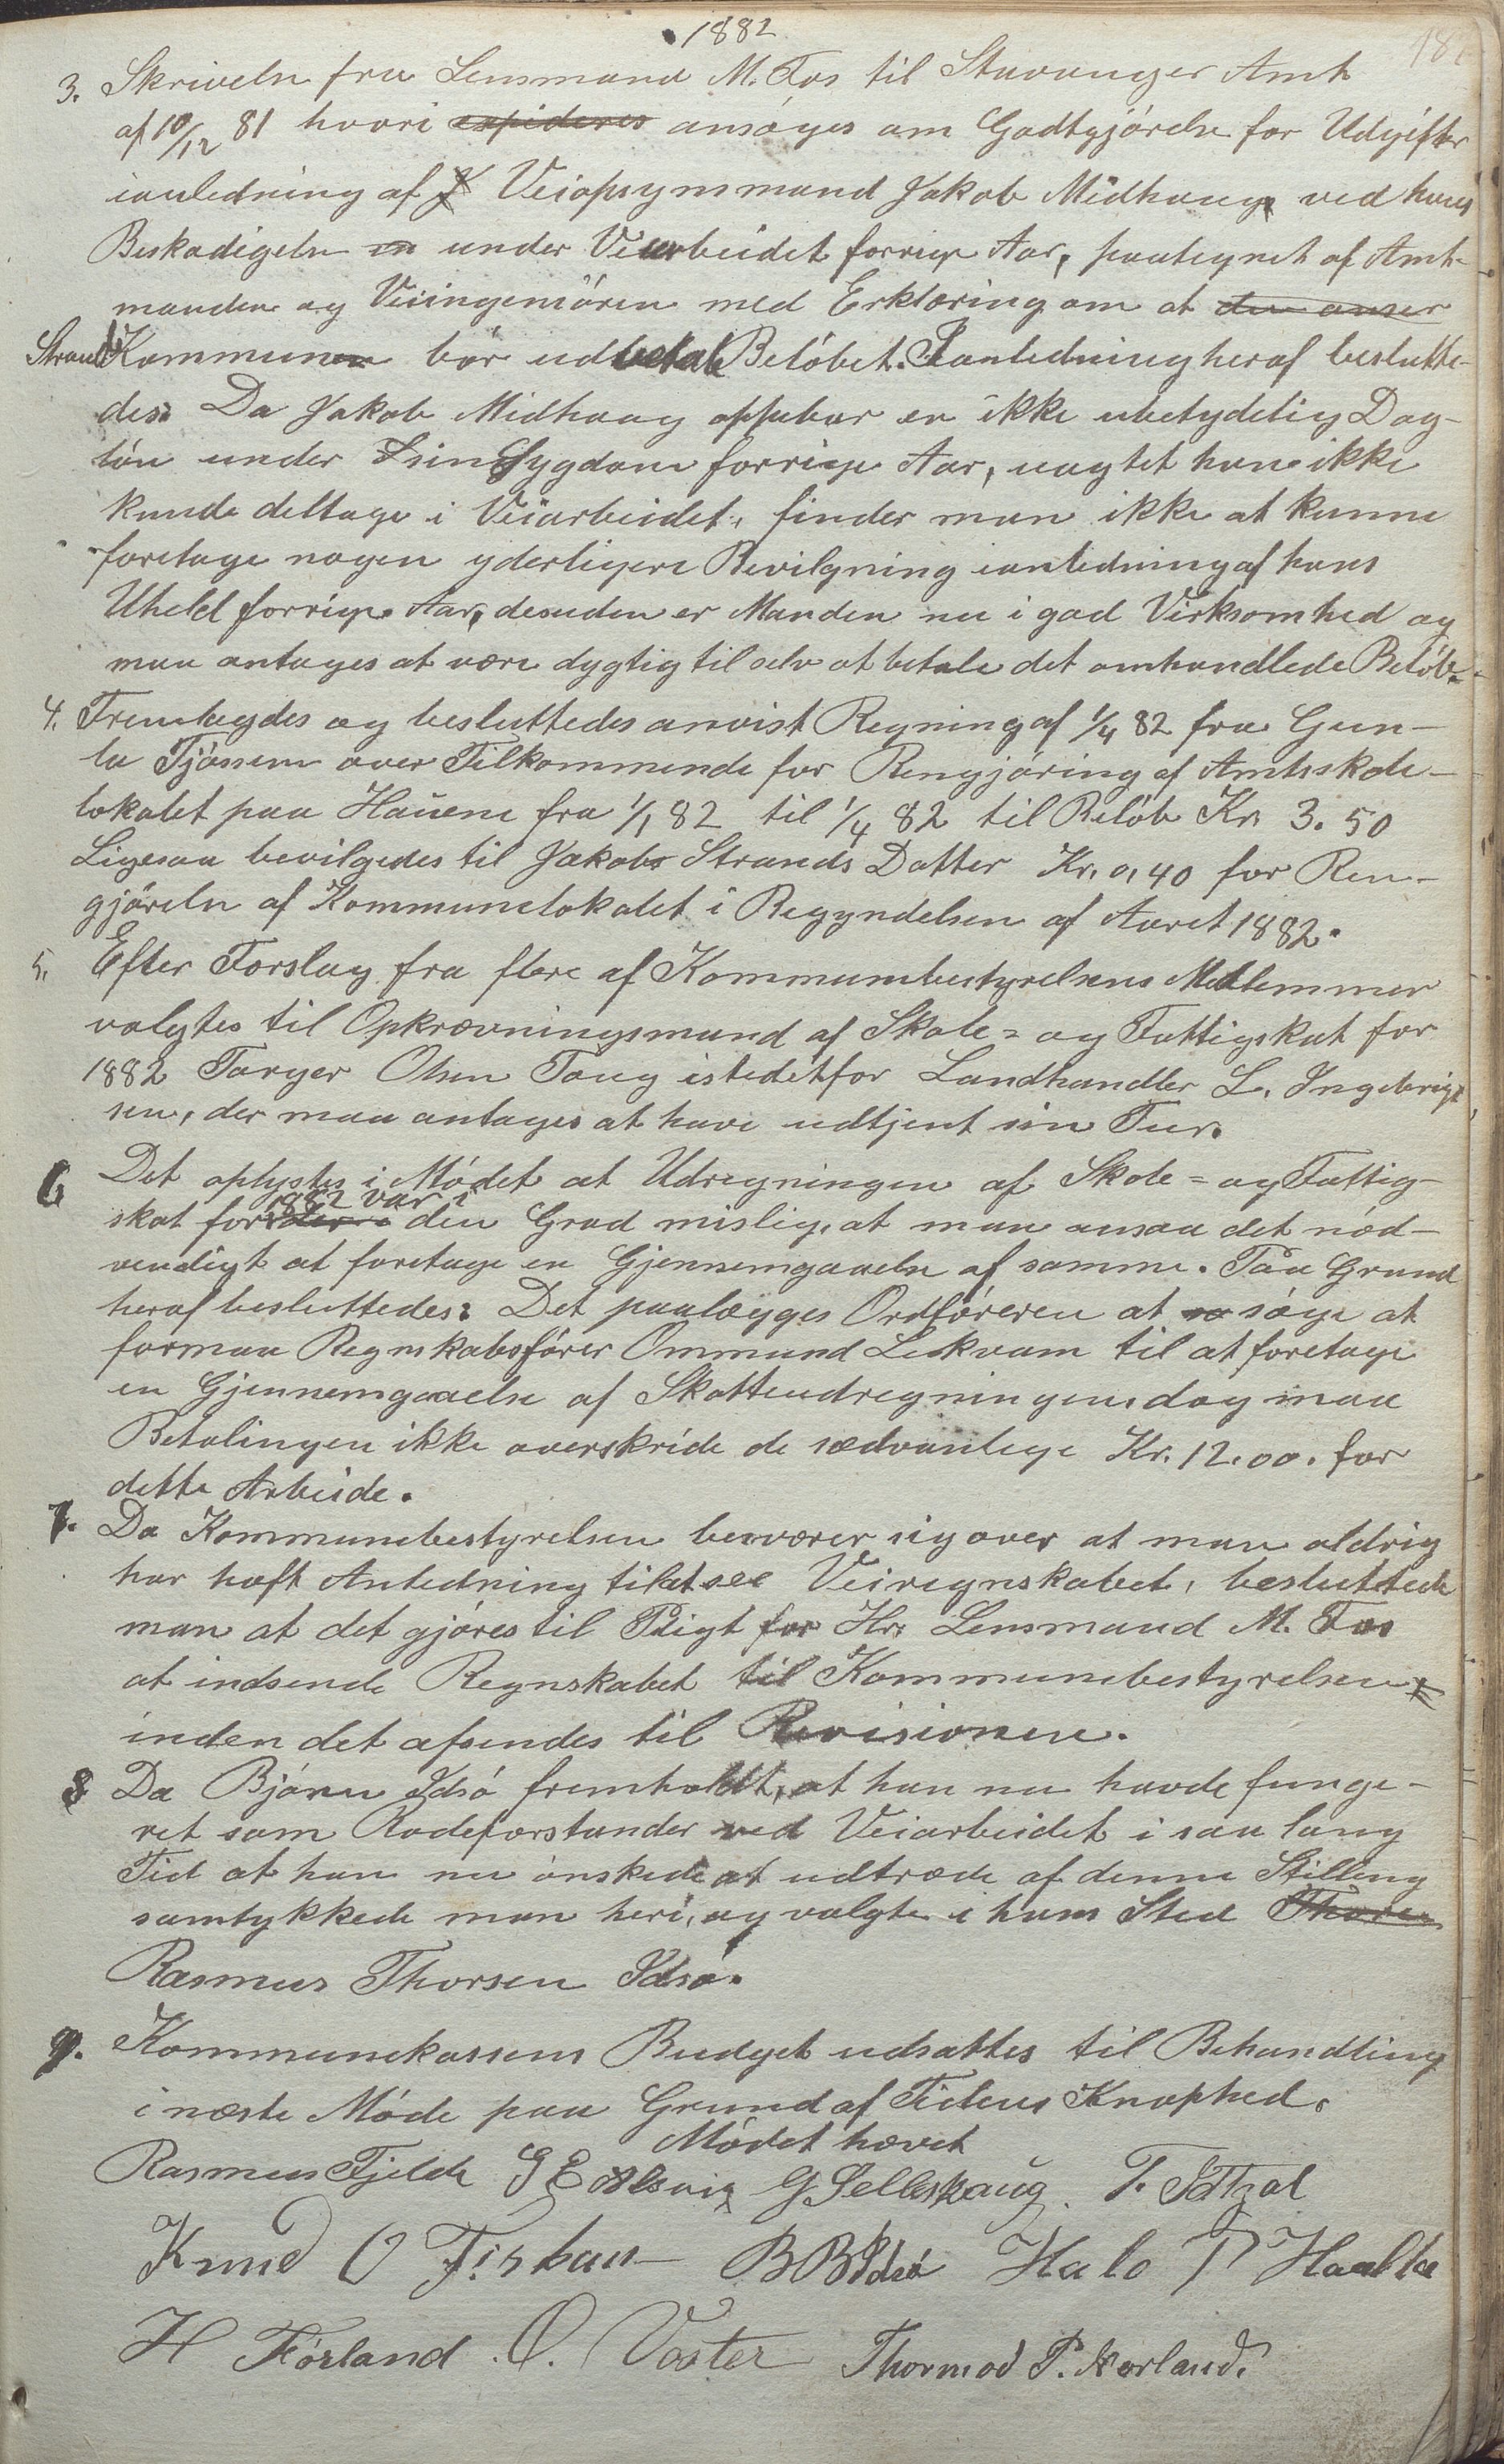 1882
3. Skrivelse fra Lensmand M. Fos til Stavanger Amt
af 10/12 81 hvori expideres ansøges om Godtgjörelse for Udgifter
ianledning af J Veiopsynsmand Jakob Midhaug ved hans
Beskadigelse en under Veiarbeidet forrige Aar, paategnet af Amt-
manden og Veiingeniören med Erklæring om at den anser
Strand Kommunen bör udbetale Belöbet. Ianledning heraf beslutte-
des: Da Jakob Midhaug oppebar en ikke ubetydelig Dag-
lön under sin Sygdom forrige Aar, uagtet han ikke
kunde deltage i Veiarbeidet, finder man ikke at kunne
foretage nogen yderligere Bevilgning ianledning af hans
Uheld forrige Aar, desuden er Manden nu i god Virksomhed og
maa antages at være dygtig til selv at betale det omhandlede Belöb.
4. Fremlagdes og besluttedes anvist Regning af 1/4 82 fra Gun-
la Tjössem over Tilkommende for Rengjöring af Amtsskole-
lokalet paa Hauene fra 1/1 82 til 1/4 82 til Belöb Kr. 3.50
Ligesaa bevilgedes til Jakobs Strands Datter Kr. 0,40 for Ren-
gjörelse af Kommunelokalet i Begyndelsen af Aaret 1882.
5. Efter Forslag fra flere af Kommunebestyrelsens Medlemmer
valgtes til Opkrævningsmand af Skole- og Fattigskat for
1882 Torger Olsen Taug istedetfor Landhandler L. Ingebrigt
sen, der maa antages at have udtjent sin Tur.
6 Det oplystes i Mödet at Udregningen af Skole- og Fattig-
skat for 1882 var i den Grad mislig, at man ansaa det nöd-
vendigt at foretage en Gjennemgaaelse af samme. Paa Grund
heraf besluttedes: Det paalægges Ordföreren at sø söge at
formaa Regnskabsförer Ommund Leekvam til at foretage
en Gjennemgaaelse af Skatteudregningen, dog maa
Betalingen ikke overskride de sædvanlige Kr. 12.00. for
dette Arbeide.
7. Da Kommunebestyrelsen besværer sig over at man aldrig
har havt Anledning til at see Veiregnskabet, besluttede
man at det gjöres til Pligt for Hr. Lensmand M. Fos
at indsende Regnskabet til Kommunebestyrelsen
inden det afsendes til Revisionen.
8 Da Björn Idsö fremholdt, at han nu havde funge-
ret som Rodeforstander ved Veiarbeidet i saa lang
Tid at han nu önskede at udtræde af denne Stilling
samtykkede man heri, og valgte i hans Sted Thore
Rasmus Thorsen Idsö.
9. Kommunekassens Budget udsattes til Behandling
i næste Möde paa Grund af Tidens Knaphed.
Mödet hævet
Rasmus Fjelde G E G Selleshaug. T.
Knud O Fiskaa B B Idsö Halv T
H Förland. O. Voster Thormod P. Norland.